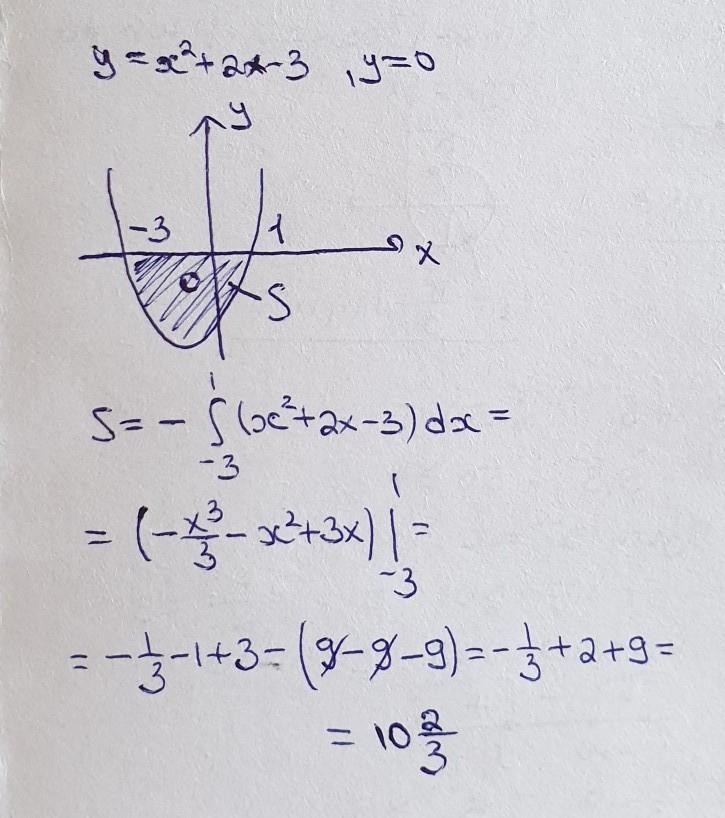 y = x² + 2x - 3 , y = 0
y
-3 1
x
0
S
S = - ∫₋₃¹ (x² + 2x - 3) dx =
= (- x³/3 - x² + 3x) |₋₃¹ =
= - 1/3 - 1 + 3 - (9 - 9 - 9) = - 1/3 + 2 + 9 =
= 10 2/3